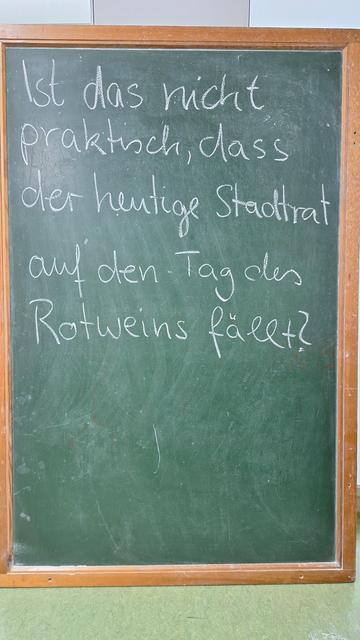 Ist das nicht
praktisch, dass
der heutige Stadtrat
auf den Tag des
Rotweins fällt?